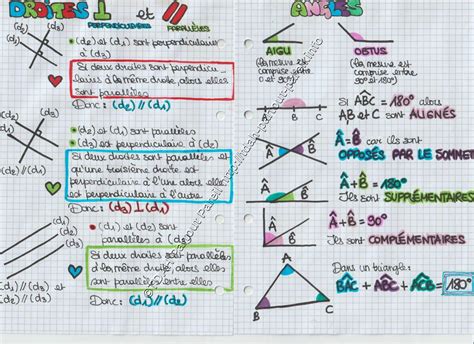 DROITES ⊥ et //
PERPENDICULAIRES PARALLÈLES
(d1)
(d3)
(d2)
• (d2) et (d1) sont perpendiculaire
à (d3)
Si deux droites sont perpendicu-
laires à la même droite, alors elles
sont parallèles
Donc : (d2) // (d1)
(d3)
(d1)
(d2)
• (d2) et (d1) sont parallèles
• (d3) et (d1) sont perpendiculaires
Si deux droites sont parallèles et
qu'une troisième droite est
perpendiculaire à l'une alors elle
est perpendiculaire à l'autre.
Donc : (d3) ⊥ (d2)
(d1)
(d3)
(d2)
• (d2) et (d1) sont
parallèles à (d3)
Si deux droites sont parallèles
à la même droite, alors elles
sont parallèles entre elles
Donc : (d1) // (d2)
ANGLES
AIGU
(la mesure est
comprise entre
0° et 90°)
OBTUS
(la mesure est
comprise entre
90° et 180°)
A B C
Si ABC = 180° alors
AB et C sont ALIGNÉS
A B
Â = B̂ car ils sont
OPPOSÉS PAR LE SOMMET
A B
Â + B̂ = 180°
Ils sont SUPPLÉMENTAIRES
A
B
Â + B̂ = 90°
Ils sont COMPLÉMENTAIRES
B
A C
Dans un triangle :
BAC + ABC + ACB = 180°